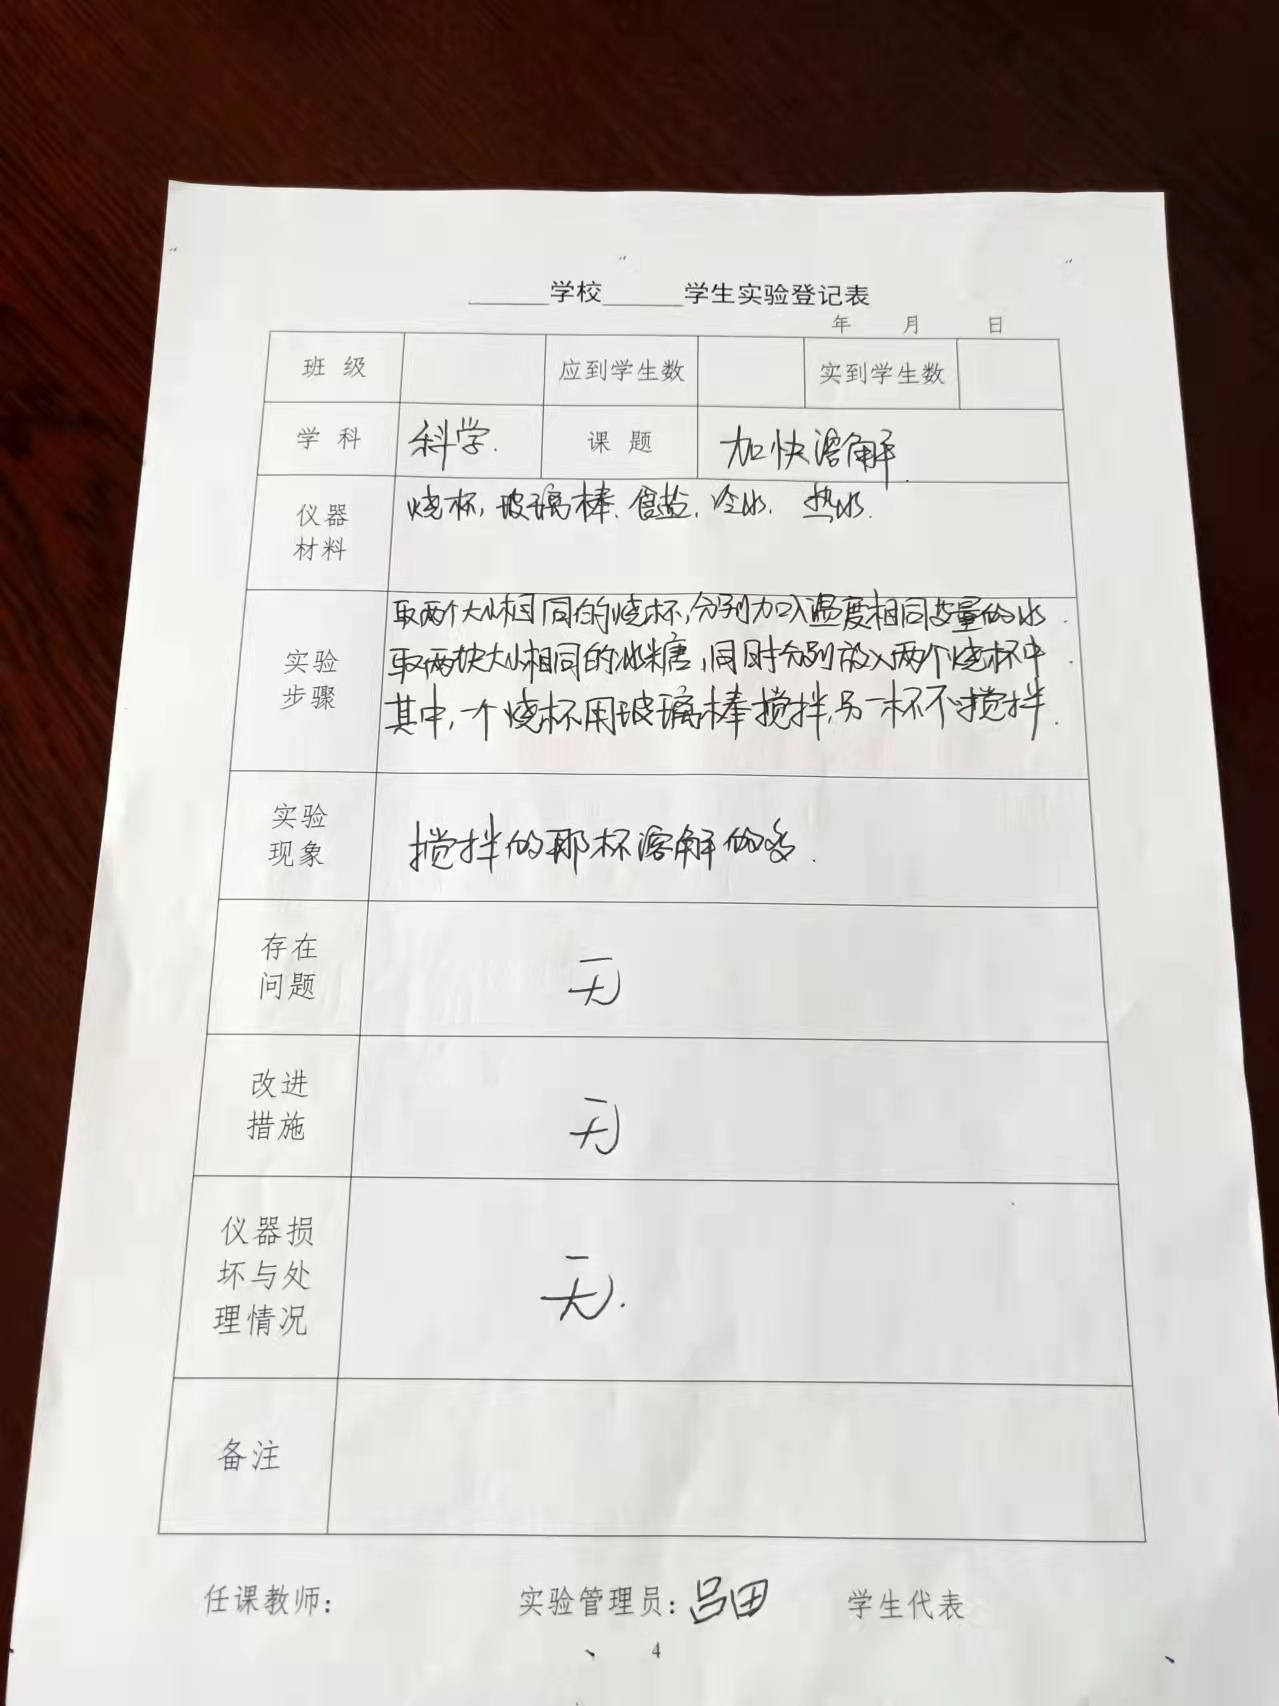 ______学校______学生实验登记表
年 月 日
班 级 应到学生数 实到学生数
学 科 科学. 课 题 加快溶解
仪器
材料
烧杯, 玻璃棒、食盐, 冷水、热水.
实验
步骤
取两个大小相同的烧杯,分别加入温度相同数量的水.
取两块大小相同的冰糖,同时分别放入两个烧杯中.
其中,一个烧杯用玻璃棒搅拌,另一杯不搅拌.
实验
现象
搅拌的那杯溶解的多.
存在
问题
无
改进
措施
无
仪器损
坏与处
理情况
无.
备注
任课教师: 实验管理员: 吕田 学生代表
4